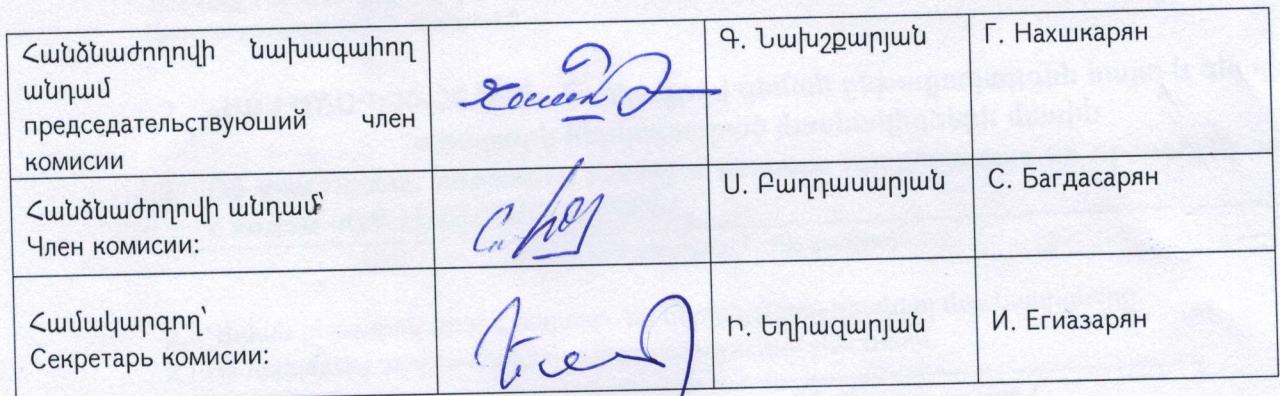 Հանձնաժողովի նախագահող
անդամ
председательствуюший член
комисии
Գ. Նախշքարյան
Г. Нахшкарян
Հանձնաժողովի անդամ՝
Член комисии:
Ս. Բաղդասարյան
С. Багдасарян
Համակարգող՝
Секретарь комисии:
Ի. Եղիազարյան
И. Егиазарян